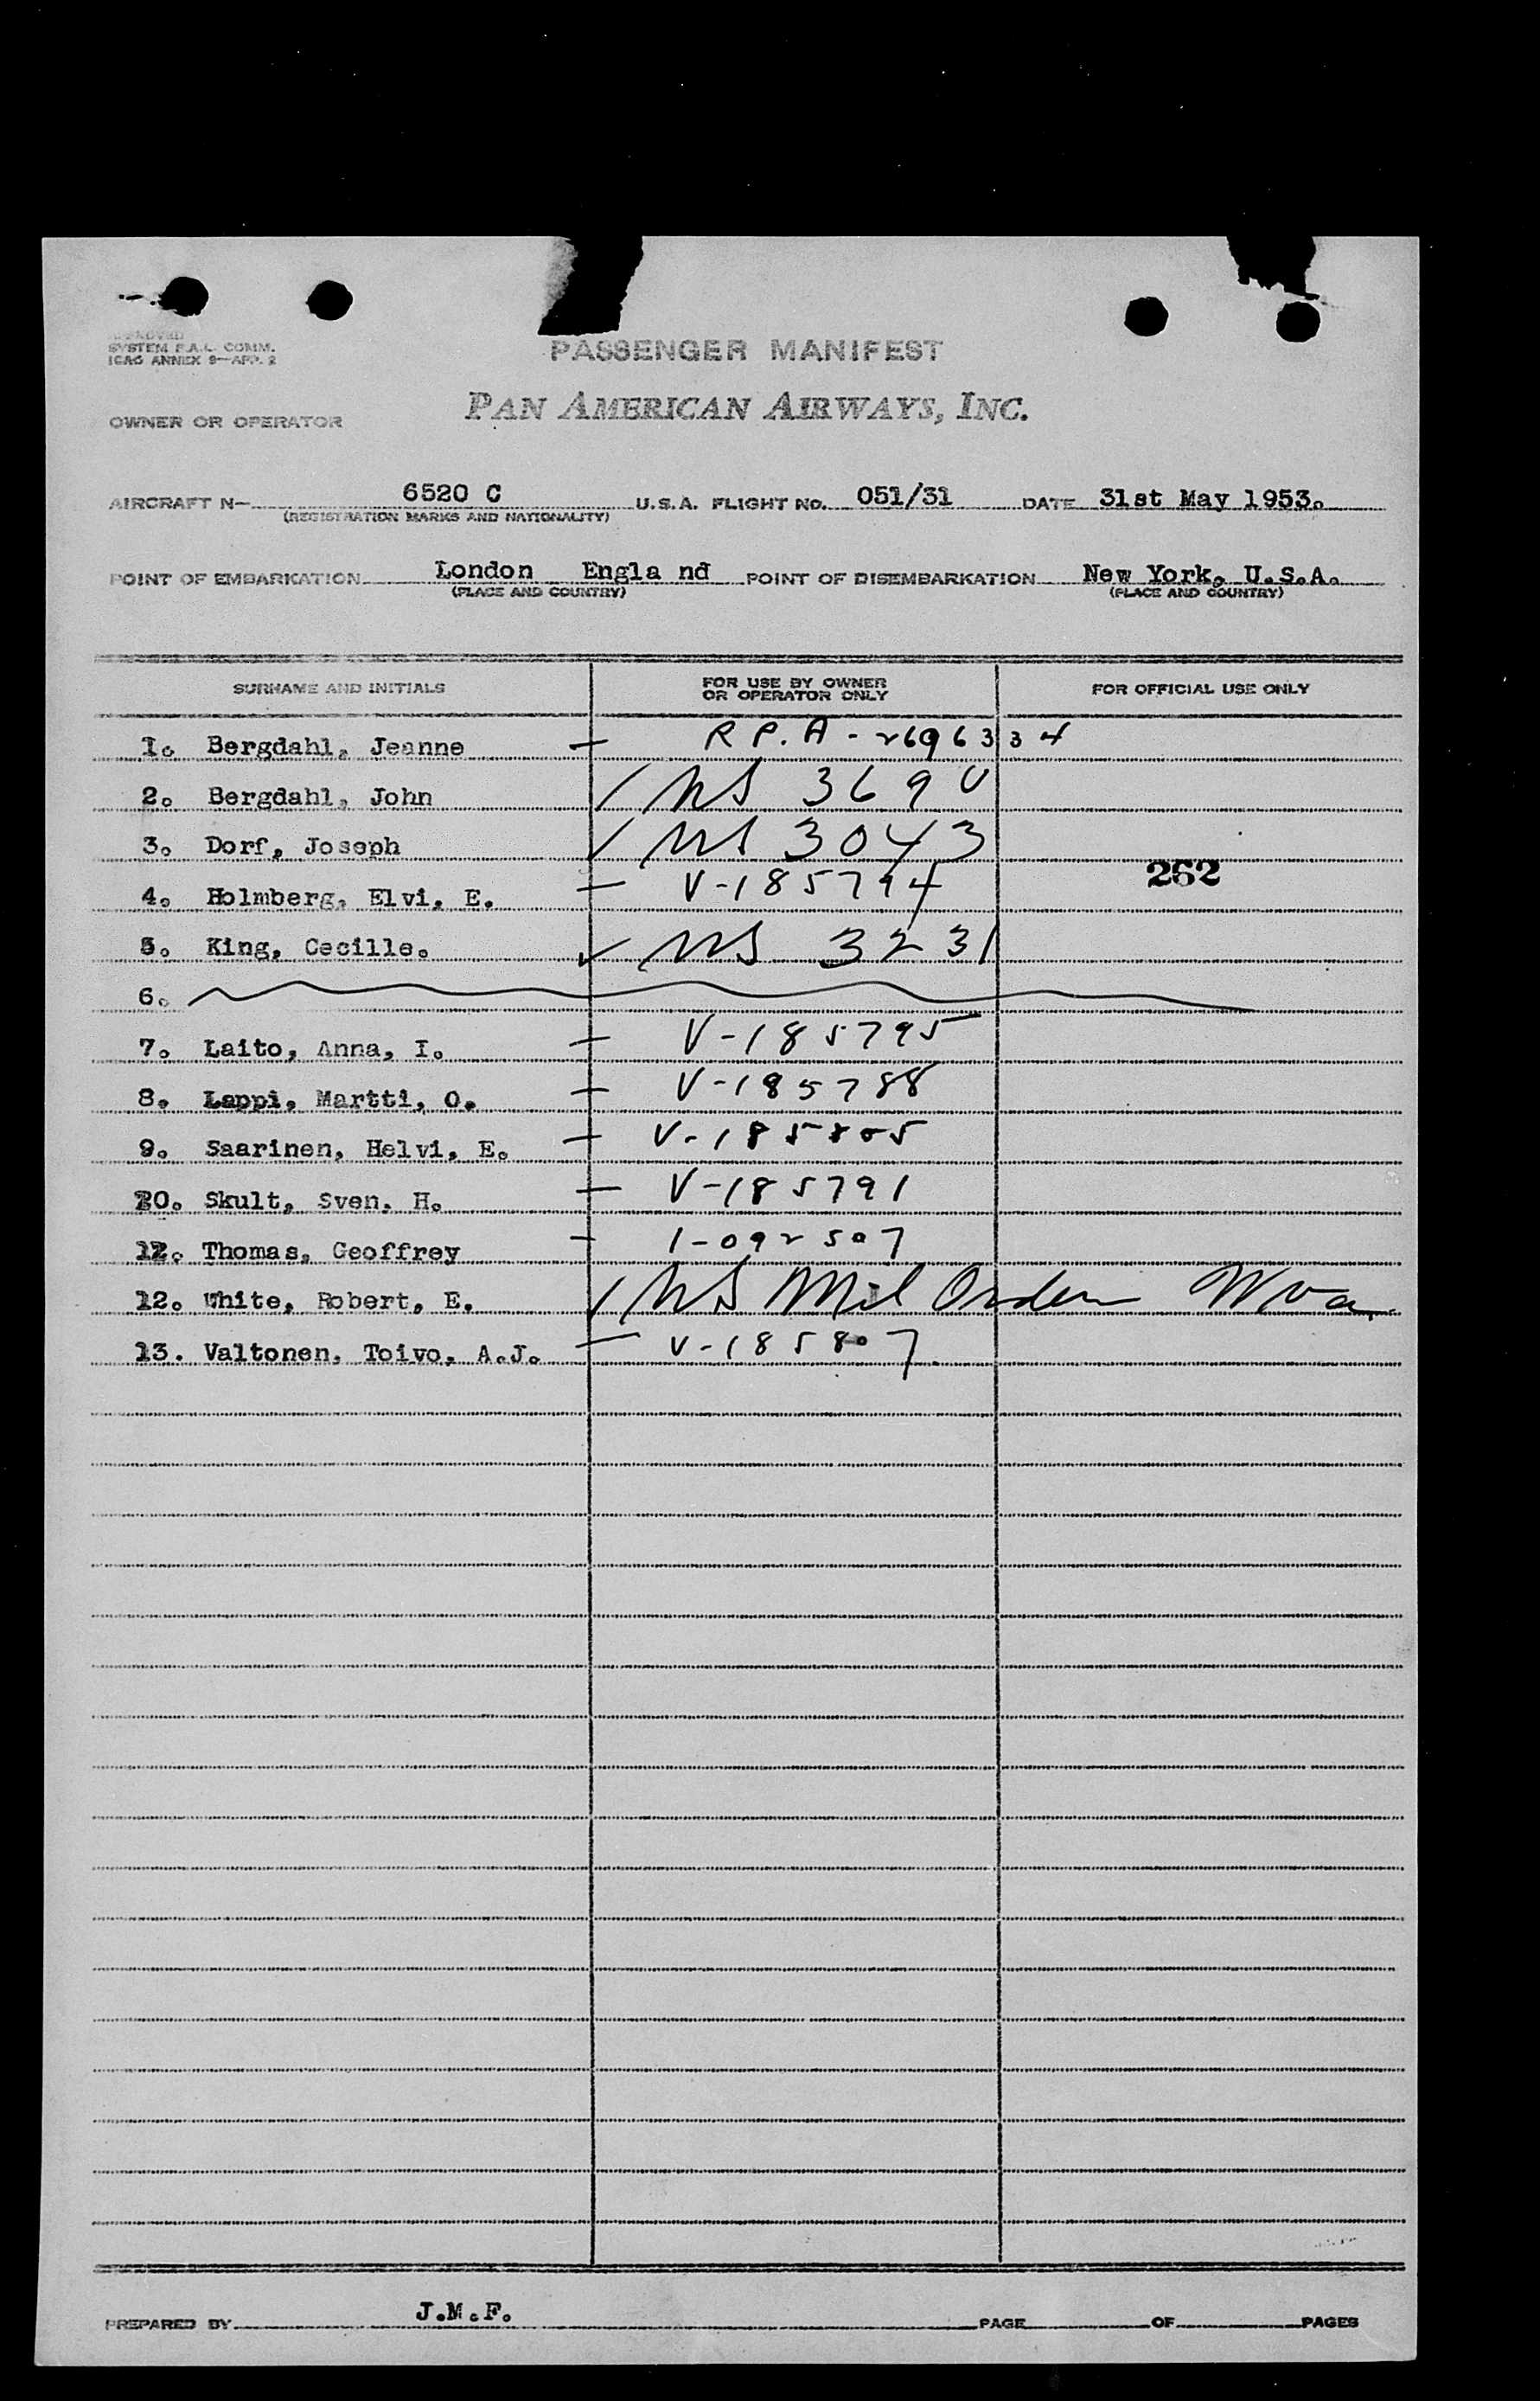 SYSTEM F.A.L. COMM.
ICAO ANNEX 9—APP. 2
PASSENGER MANIFEST
OWNER OR OPERATOR PAN AMERICAN AIRWAYS, INC.
AIRCRAFT N— 6520 C U.S.A. FLIGHT NO. 051/31 DATE 31st May 1953.
(REGISTRATION MARKS AND NATIONALITY)
POINT OF EMBARKATION London Engla nd POINT OF DISEMBARKATION New York, U.S.A.
(PLACE AND COUNTRY) (PLACE AND COUNTRY)
SURNAME AND INITIALS FOR USE BY OWNER OR OPERATOR ONLY FOR OFFICIAL USE ONLY
1. Bergdahl, Jeanne — R P. A - 2696334
2. Bergdahl, John ✓ US 3690
3. Dorf, Joseph ✓ US 3043
262
4. Holmberg, Elvi, E. — V-185794
5. King, Cecille. ✓ US 3231
6.
7. Laito, Anna, I. — V-185795
8. Lappi, Martti, O. — V-185788
9. Saarinen, Helvi, E. — V-185805
10. Skult, Sven, H. — V-185791
12. Thomas, Geoffrey — I-092507
12. White, Robert, E. ✓ US Mil Orders
13. Valtonen, Toivo, A.J. — V-185807
PREPARED BY J.M.F. PAGE OF PAGES